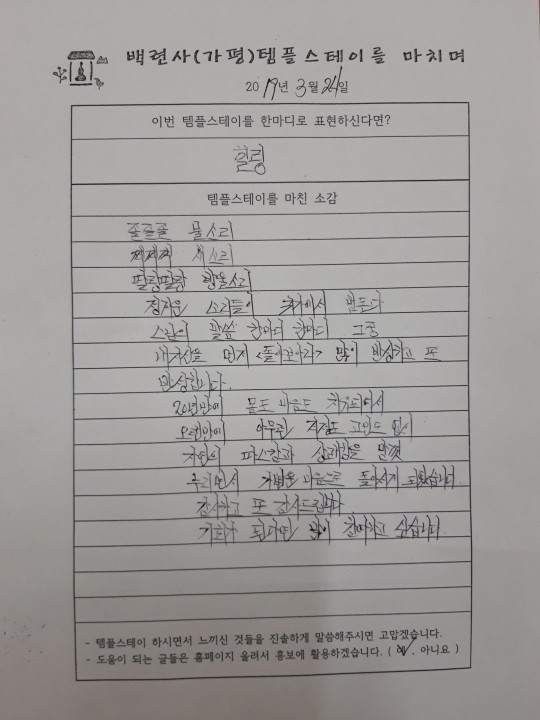 백련사(가평)템플스테이를 마치며
2019년 3월 24일
이번 템플스테이를 한마디로 표현하신다면?
힐링
템플스테이를 마친 소감
졸졸졸 물소리
짹짹짹 새소리
딸랑딸랑 방울소리
정겨운 소리들이 귓가에서 맴돈다
스님의 말씀 한마디 한마디 그중
내자신을 먼저 <돌아보아라> 많이 반성하고 또
반성합니다.
20년만에 몸도 마음도 치유되어서
오랜만에 아무런 걱정도 고민도 없이
자연의 상쾌함을 맘껏
누리면서 가벼운 마음으로 돌아가게 되었습니다.
감사하고 또 감사드립니다
기회가 된다면 많이 참여하고 싶습니다.
- 템플스테이 하시면서 느끼신 것들을 진솔하게 말씀해주시면 고맙겠습니다.
- 도움이 되는 글들은 홈페이지 올려서 홍보에 활용하겠습니다. ( 예 , 아니요 )